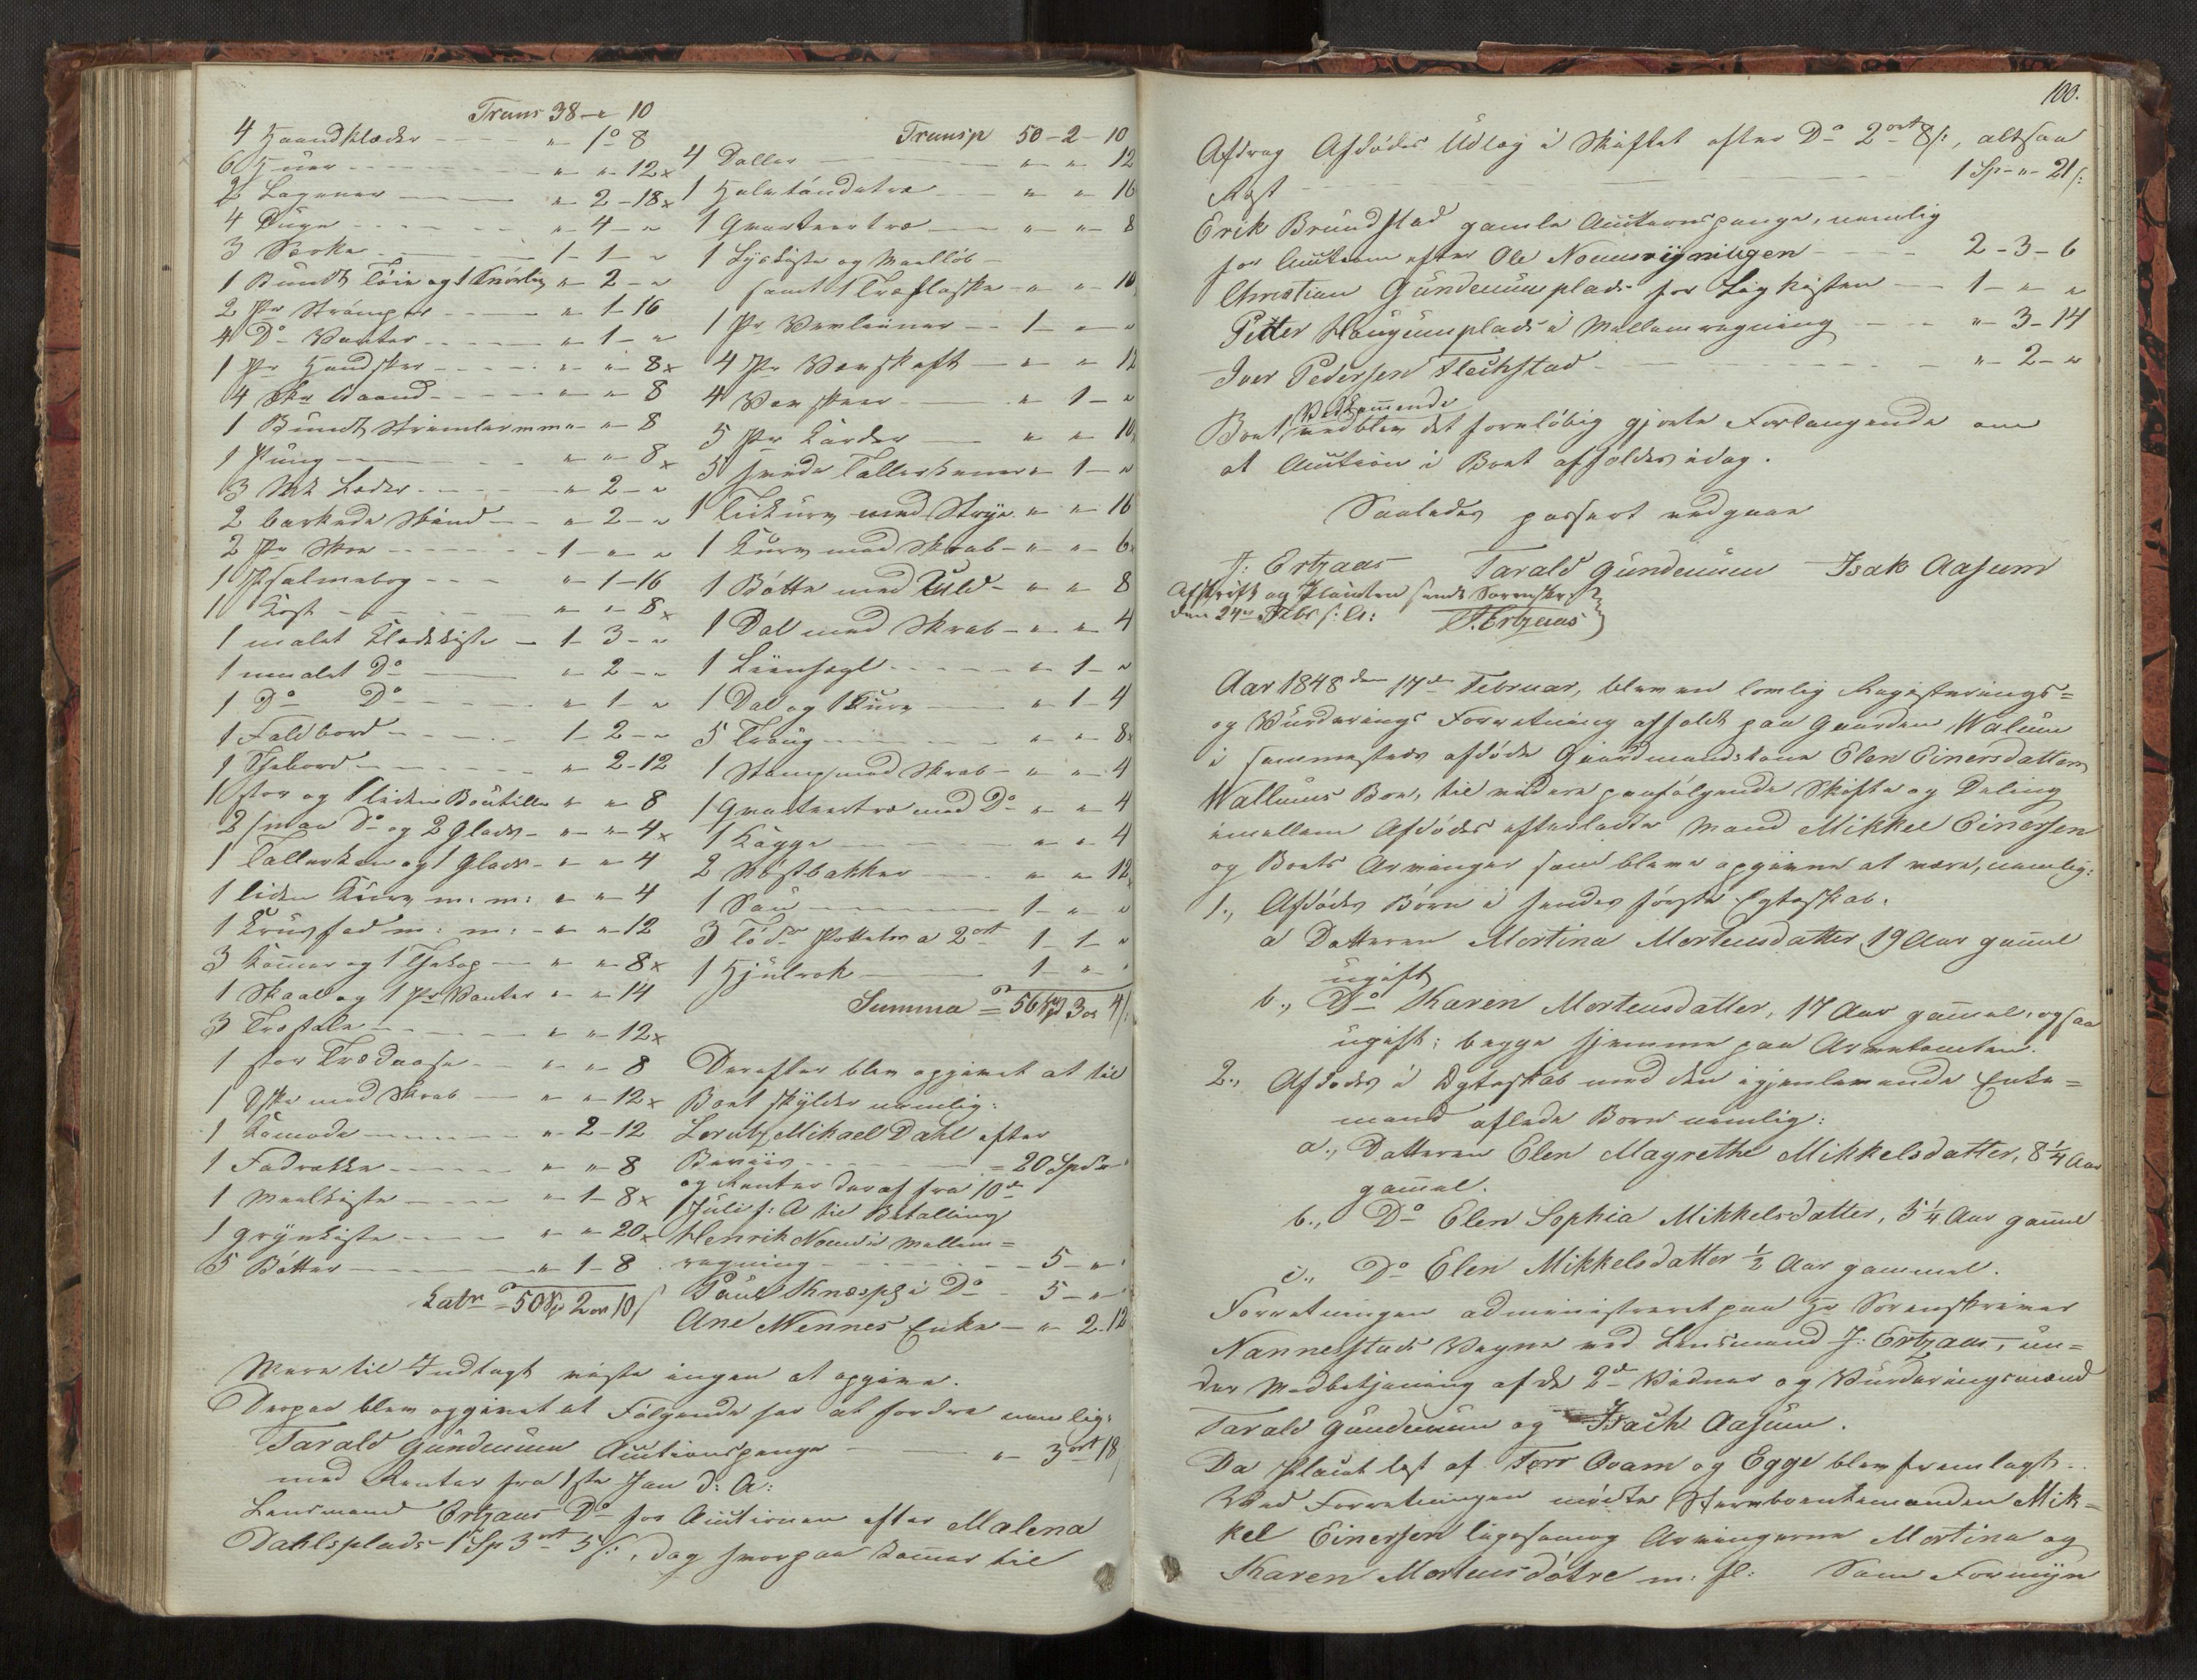 Trans 38 - " 10
4 Haandklæder - - - - " 1° 8
6 Huer - - - - " " 12 x
2 Lagener - - " 2 - 18 x
4 Duge - - - - " 4 - "
3 Særke - - - - 1 - 1 - "
1 Bundt Tøie og 1 " 2 - "
2 Pr Strømper - - - " 1 - 16
4 Do Vanter - - - " 1 - "
1 Pr Handsker - - - " " 8 x
4 Skr Vaand - - - " " 8
1 Bundt Strimler m m " " 8
1 Pung - - - - " " 8 x
3 Mk Læder - - - " 2 - "
2 barkede Skind - - " 2 - "
2 Pr Skoe - - - - 1 - " - "
1 Psalmebog - - - " 1 - 16
1 Kost - - - - " " 8 x
1 malet Klædekiste - 1 - 3 - "
1 umalet Do - - " 2 - "
1 Do Do - - - - " 1 - "
1 Faldbord - - - 1 - 2 - "
1 Thebord - - - " 2 - 12
1 stor og 1 liden Boutille " " 8
2 smaa Do og 2 Glads - " " 4 x
1 Tallerken og 1 Glads - " " 4
1 liden Kurv m: m: " " 4
1 Kruusfad m: m: - " " 12
3 Kammer og 1 Thekop - " " 8 x
1 Skaal og 1 Pr Vanter " " 14
3 - - - - " " 12 x
1 stor Trædaase - - " " 8
1 Øske med Skrab - - " " 12 x
1 Komode - - - " 2 - 12
1 Fadrække - - - " " 8
1 Meelkiste - - - " 1 - 8 x
1 Grynkiste - - - " " 20 x
5 Bøtter - - - " 1 - 8
Latr = 50 Spd 2 or 10 s
Transp 50 - 2 - 10
4 Doller - - - " " 12
1 Halvtøndetræ - - " " 16
1 Qvarteertræ - - " " 8
1 Lysekiste og Meelløb -
samt 1 Træflaske - " " 10
1 Pr - - 1 - " - "
4 Pr Vævskaft - " " 12
4 Vævskeer - - " 1 - "
5 Pr Karder - - " " 10
5 hvide Tallerkener " 1 - "
1 Tiekurv med Strye " " 16
1 Kurv med Skrab - " " 6 x
1 Bøtte med Uld - " " 8
1 Dal med Skrab - " " 4
1 Liinsegl - - - - " 1 - "
1 Dal og 1 Kurv - - " 1 - 4
5 Traug - - - - " " 8 x
1 Stamp med Skrab - " " 4
1 Qvarteertræ med Do - " " 4
1 Kagge - - - " " 4
2 Høstbakker - - " " 12 x
1 Soe - - - - 1 - " - "
3 Tødr Potteter a 2 ort 1 - 1 - "
1 Hjulrok - - - 1 - " - "
Summa = 56 Spd 3 or 4 s:
Derefter blev opgivet at til
Boet skylder nemlig:
Lorntz Mikael Dahl efter
Beviis - - - - = 20 Spdr
og Renter deraf fra 10de
Juli f: A til Betalling
Henrik i Mellem=
regning - - - - 5 - " -
Paul Knæsplz i Do - 5 - " -
Ane Mennes Enke - " 2 - 12
Mere til Indtægt vidste ingen at opgive.
Derpaa blev opgivet at Følgende har at fordre nemlig:
Tarald Gundemun Auctionspenge - - " - 3 ort 18 s
med Renter fra 1ste Jan d: A:
Lensmand Ertzaas Do for Auctionen efter Malena
Dahlsplads 1 Sp 3 ort 5 s:, dog hvorpaa kommer til
100.
Afdrag Afdødes Udlæg i Skiftet efter Do 2 ort 8 s:, altsaa
Rest - - - - 1 Sp - " - 21 s:
Erik Brundstad gamle Auctionspenge, nemlig
for Auctionen efter Ole - - - 2 - 3 - 6
Christian Gundemunsplads for Ligkisten - - 1 - " - "
Petter Haugumsplads i Mellemregning - - - " - 3 - 14
Iver Pedersen Flechstad - - - - " - 2 - "
Vedkommende
Boet vedblev det foreløbig gjorte Forlangende om
at Auction i Boet afholdes idag.
Saaledes passert vedgaae
J: Ertzaas Tarald Gundemun Isak Aasum
Afskrift og Placaten sendt Sorenskr:
den 24de Febr s: A: J. Ertzaas
Aar 1848 den 17de Februar, blev en lovlig Registerings=
og Vurderings Forretning afholdt paa Gaarden Walum
i sammesteds afdøde Gaardmandskone Elen Einersdatter
Wallums Boe, til videre paafølgende Skifte og Deling
imellem Afdødes efterladte Mand Mikkel Einersen
og Boets Arvinger som bleve opgivne at være, nemlig:
1., Afdødes Børn i hendes første Egteskab.
a Datteren Mortina Mortensdatter, 19 Aar gammel
ugift
b., Do Karen Mortensdatter, 17 Aar gammel, ogsaa
ugift; begge hjemme paa Arvetomten.
2., Afdødes i Egteskab med den igjenlevende Enke=
mand aflede Børn nemlig:
a., Datteren Elen Magrethe Mikkelsdatter, 8 1/4 Aar
gammel.
b., Do Elen Sophia Mikkelsdatter, 5 1/4 Aar gammel
c., Do Elen Mikkelsdatter 1/2 Aar gammel.
Forretningen administreret paa Hr Sorenskriver
Nannestads Vegne ved Lensmand J: Ertzaas, un=
der Medbetjening af de 2de Vidner og Vurderingsmænd
Tarald Gundemun og Isach Aasum.
Da Placat læst af Torr Qvam og Egge blev fremlagt.
Ved Forretningen mødte Stervboenkemanden Mik=
kel Einersen ligesaa og Arvingerne Mortina og
Karen Mortensdøtre m: fl: Som Formyn